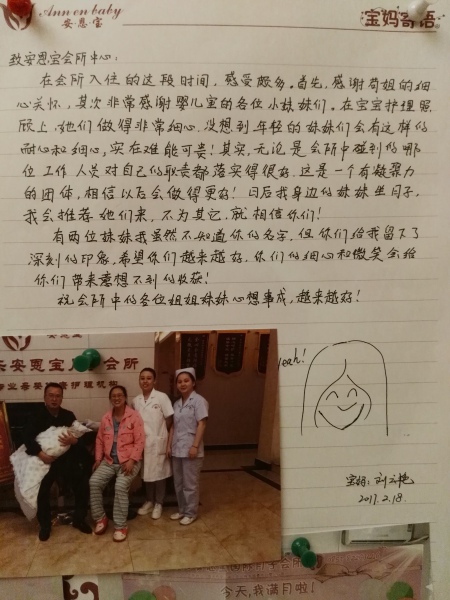 Ann on baby
安·恩·宝
宝妈寄语
致安恩宝会所中心:
在会所入住的这段时间,感受颇多。首先,感谢荷姐的细
心关怀,其次非常感谢婴儿室的各位小妹妹们。在宝宝护理照
顾上,她们做得非常细心,没想到年轻的妹妹们会有这样的
耐心和细心,实在难能可贵!其实,无论是会所中碰到的哪
位工作人员对自己的职责都落实得很好,这是一个有凝聚力
的团体,相信以后会做得更好!日后我身边的妹妹坐月子,
我会推荐她们来,不为其它,就相信你们!
有两位妹妹我虽然不知道你的名字,但你们给我留下了
深刻的印象,希望你们越来越好,你们的细心和微笑会给
你们带来意想不到的收获!
祝会所中的各位姐姐妹妹心想事成,越来越好!
安恩宝
安恩宝 会所
yeah!
宝妈:刘 艳
2017.2.18.
会所
今天,我满月啦!